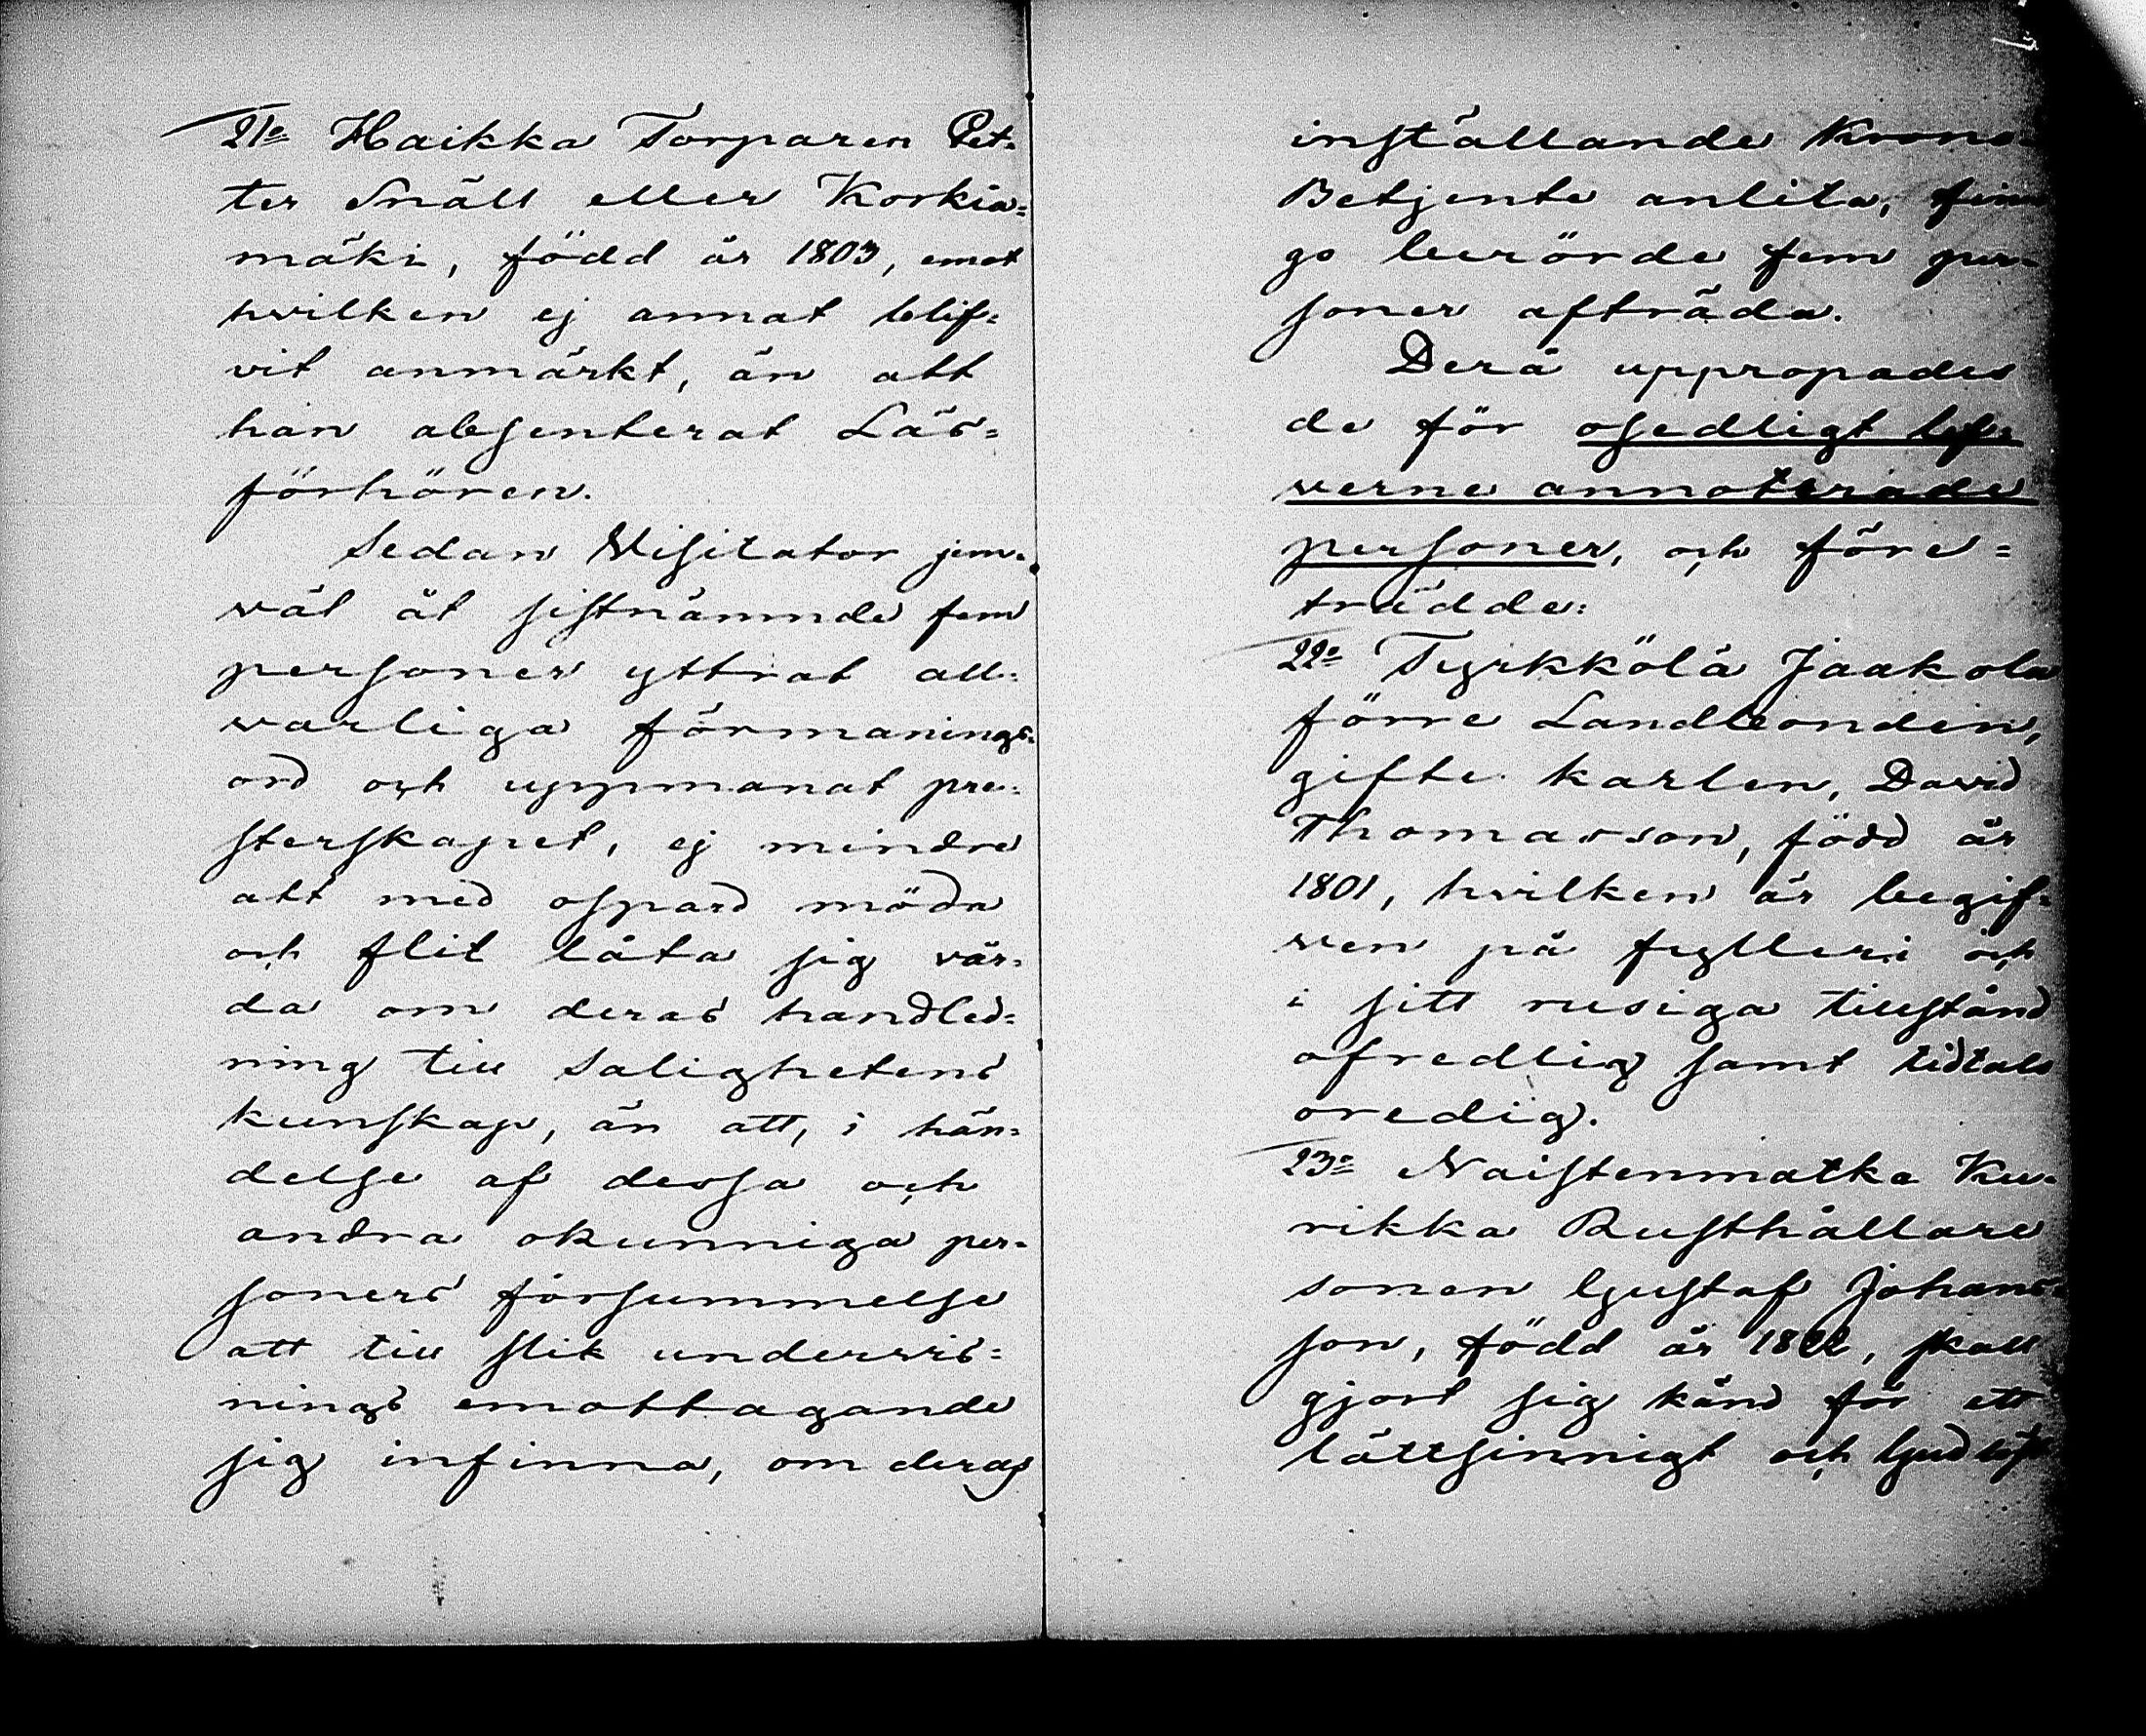 21o Haikka Torparen Pet=
ter Snäll eller Korkia=
mäki, född år 1803, emot
hvilken ej annat blif=
vit anmärkt, än att
han absenterat Läs=
förhören.
Sedan Visitator jem=
väl åt sistnämnde fem
personer yttrat all=
varliga förmanings=
ord och uppmanat pre=
sterskapet, ej mindre
att med ospard möda
och flit låta sig vår=
da om deras handled=
ning till salighetens
kunskap, än att, i hän=
delse af dessa och
andra okunniga per=
soners försummelse
att till slik undervis=
nings emottagande
sig infinna, om deras
inställande Krono=
Betjente anlita, fin
go berörde fem per=
soner afträda.
Derå uppropades
de för osedligt lef=
verne annoterade
personer, och före=
trädde:
22o Tyrkkölä Jaakola
förre Landbonden,
gifte karlen, David
Thomasson, född år
1801, hvilken är begif=
ven på fylleri och
i sitt rusiga tillstånd
ofredlig samt tidtals
oredig.
23o Naistenmatka Ku=
rikka Rusthållare
sonen Gustaf Johans=
son, född år 1822, skall
gjort sig känd för ett
lättsinnigt och